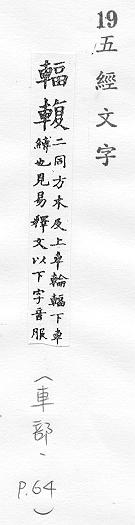 19
五經文字
輻輹
二同方木反上車輪輻下車
縛也見易釋文以下字音服
(車部、
P.64)